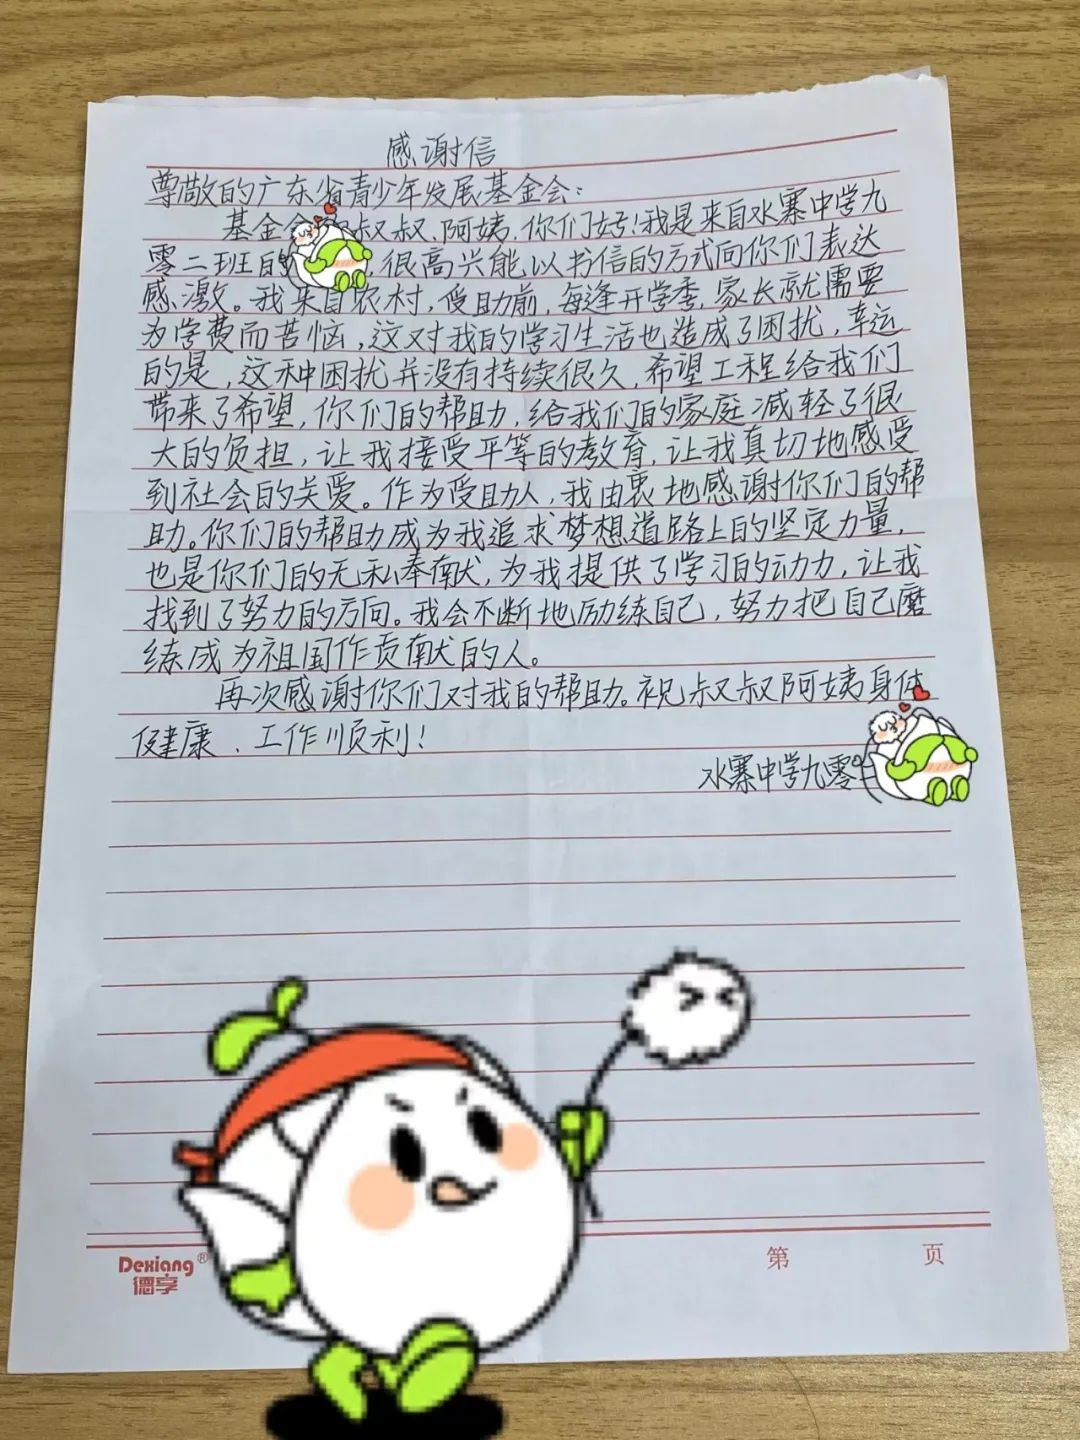 感谢信
尊敬的广东省青少年发展基金会：
基金会的叔叔、阿姨，你们好！我是来自水寨中学九
零二班的，很高兴能以书信的方式向你们表达
感激。我来自农村，受助前，每逢开学季，家长就需要
为学费而苦恼，这对我的学习生活也造成了困扰，幸运
的是，这种困扰并没有持续很久，希望工程给我们
带来了希望，你们的帮助，给我们的家庭减轻了很
大的负担，让我接受平等的教育，让我真切地感受
到社会的关爱。作为受助人，我由衷地感谢你们的帮
助。你们的帮助成为我追求梦想道路上的坚定力量，
也是你们的无私奉献，为我提供了学习的动力，让我
找到了努力的方向。我会不断地励练自己，努力把自己磨
练成为祖国作贡献的人。
再次感谢你们对我的帮助。祝叔叔阿姨身体
健康、工作顺利！
水寨中学九零
Dexiang®
德享
第 页